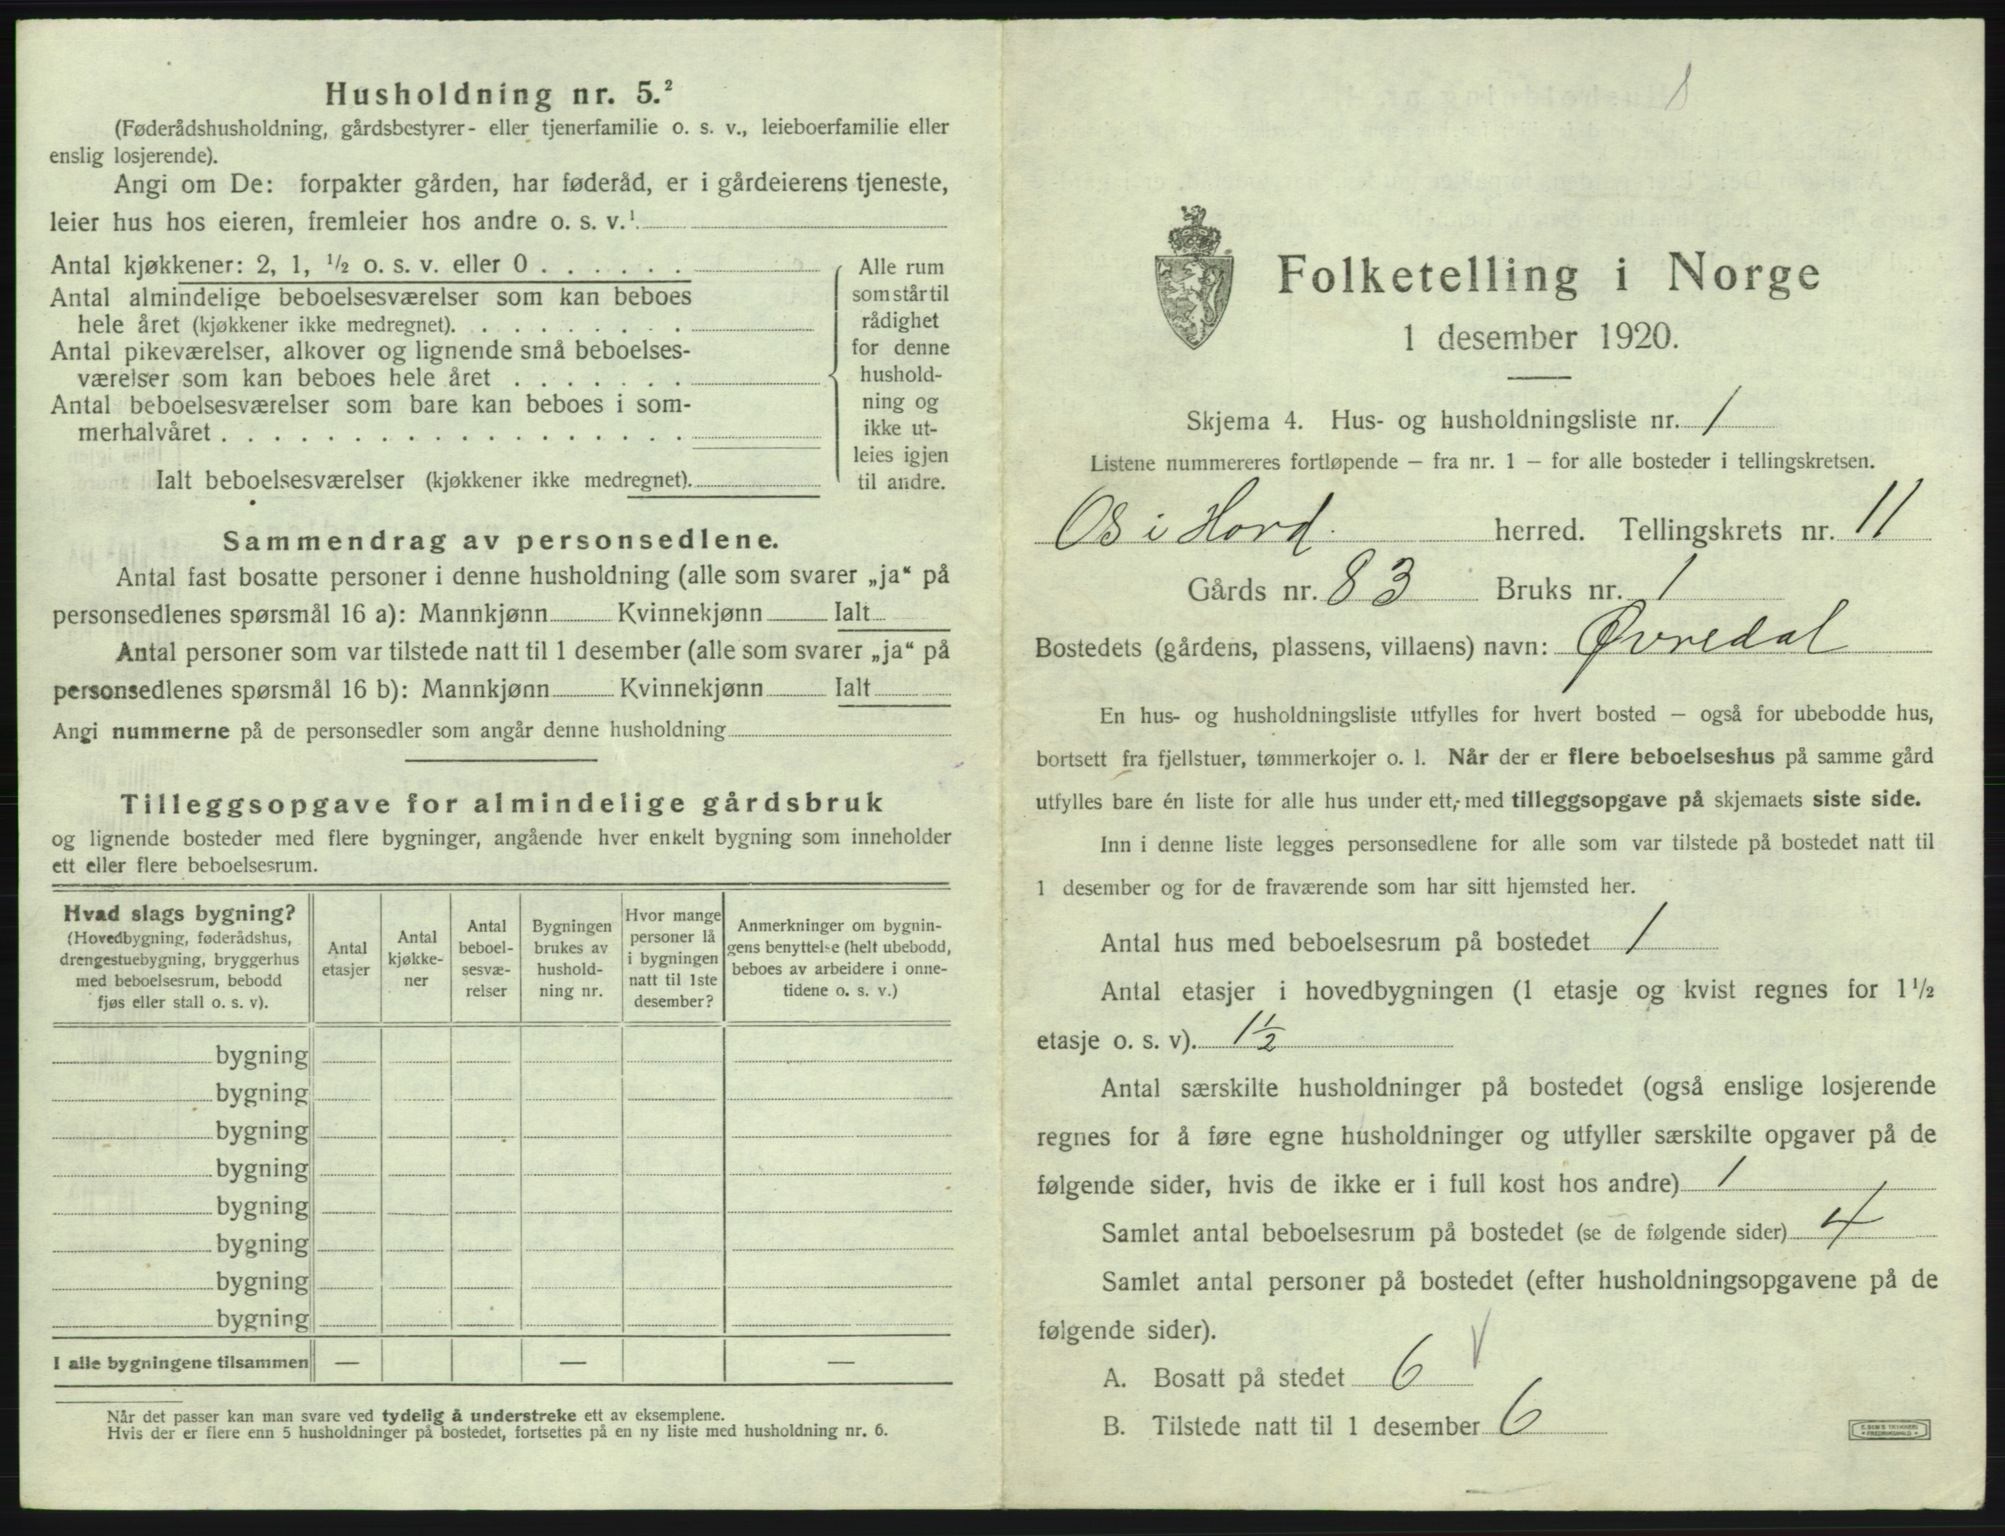 Husholdning nr. 5.²
(Føderådshusholdning, gårdsbestyrer- eller tjenerfamilie o. s. v., leieboerfamilie eller
enslig losjerende).
Angi om De: forpakter gården, har føderåd, er i gårdeierens tjeneste,
leier hus hos eieren, fremleier hos andre o. s. v.¹
Antal kjøkkener: 2, 1, ½ o. s. v. eller 0 . . . . . .
Antal almindelige beboelsesværelser som kan beboes
hele året (kjøkkener ikke medregnet). . . . . . . . .
Antal pikeværelser, alkover og lignende små beboelses-
værelser som kan beboes hele året . . . . . . .
Antal beboelsesværelser som bare kan beboes i som-
merhalvåret . . . . . . . . . . . . . . . . .
Ialt beboelsesværelser (kjøkkener ikke medregnet).
Alle rum
som står til
rådighet
for denne
hushold-
ning og
ikke ut-
leies igjen
til andre.
Sammendrag av personsedlene.
Antal fast bosatte personer i denne husholdning (alle som svarer „ja“ på
personsedlenes spørsmål 16 a): Mannkjønn Kvinnekjønn Ialt
Antal personer som var tilstede natt til 1 desember (alle som svarer „ja“ på
personsedlenes spørsmål 16 b): Mannkjønn Kvinnekjønn Ialt
Angi nummerne på de personsedler som angår denne husholdning
Tilleggsopgave for almindelige gårdsbruk
og lignende bosteder med flere bygninger, angående hver enkelt bygning som inneholder
ett eller flere beboelsesrum.
Hvad slags bygning?
(Hovedbygning, føderådshus,
drengestuebygning, bryggerhus
med beboelsesrum, bebodd
fjøs eller stall o. s. v).
Antal
etasjer
Antal
kjøkke-
ner
Antal
beboel-
sesvæ-
relser
Bygningen
brukes av
hushold-
ning nr.
Hvor mange
personer lå
i bygningen
natt til 1ste
desember?
Anmerkninger om bygnin-
gens benyttelse (helt ubebodd,
beboes av arbeidere i onne-
tidene o. s. v.)
bygning
bygning
bygning
bygning
bygning
bygning
bygning
bygning
I alle bygningene tilsammen — — —
Når det passer kan man svare ved tydelig å understreke ett av eksemplene.
Hvis der er flere enn 5 husholdninger på bostedet, fortsettes på en ny liste med husholdning nr. 6.
Folketelling i Norge
1 desember 1920.
Skjema 4. Hus- og husholdningsliste nr. 1
Listene nummereres fortløpende – fra nr. 1 – for alle bosteder i tellingskretsen.
Os i Hord. herred. Tellingskrets nr. 11
Gårds nr. 83 Bruks nr. 1
Bostedets (gårdens, plassens, villaens) navn: Øvredal
En hus- og husholdningsliste utfylles for hvert bosted – også for ubebodde hus,
bortsett fra fjellstuer, tømmerkojer o. l. Når der er flere beboelseshus på samme gård
utfylles bare én liste for alle hus under ett, med tilleggsopgave på skjemaets siste side.
Inn i denne liste legges personsedlene for alle som var tilstede på bostedet natt til
1 desember og for de fraværende som har sitt hjemsted her.
Antal hus med beboelsesrum på bostedet 1
Antal etasjer i hovedbygningen (1 etasje og kvist regnes for 1½
etasje o. s. v). 1½
Antal særskilte husholdninger på bostedet (også enslige losjerende
regnes for å føre egne husholdninger og utfyller særskilte opgaver på de
følgende sider, hvis de ikke er i full kost hos andre) 1
Samlet antal beboelsesrum på bostedet (se de følgende sider) 4
Samlet antal personer på bostedet (efter husholdningsopgavene på de
følgende sider).
A. Bosatt på stedet 6
B. Tilstede natt til 1 desember 6